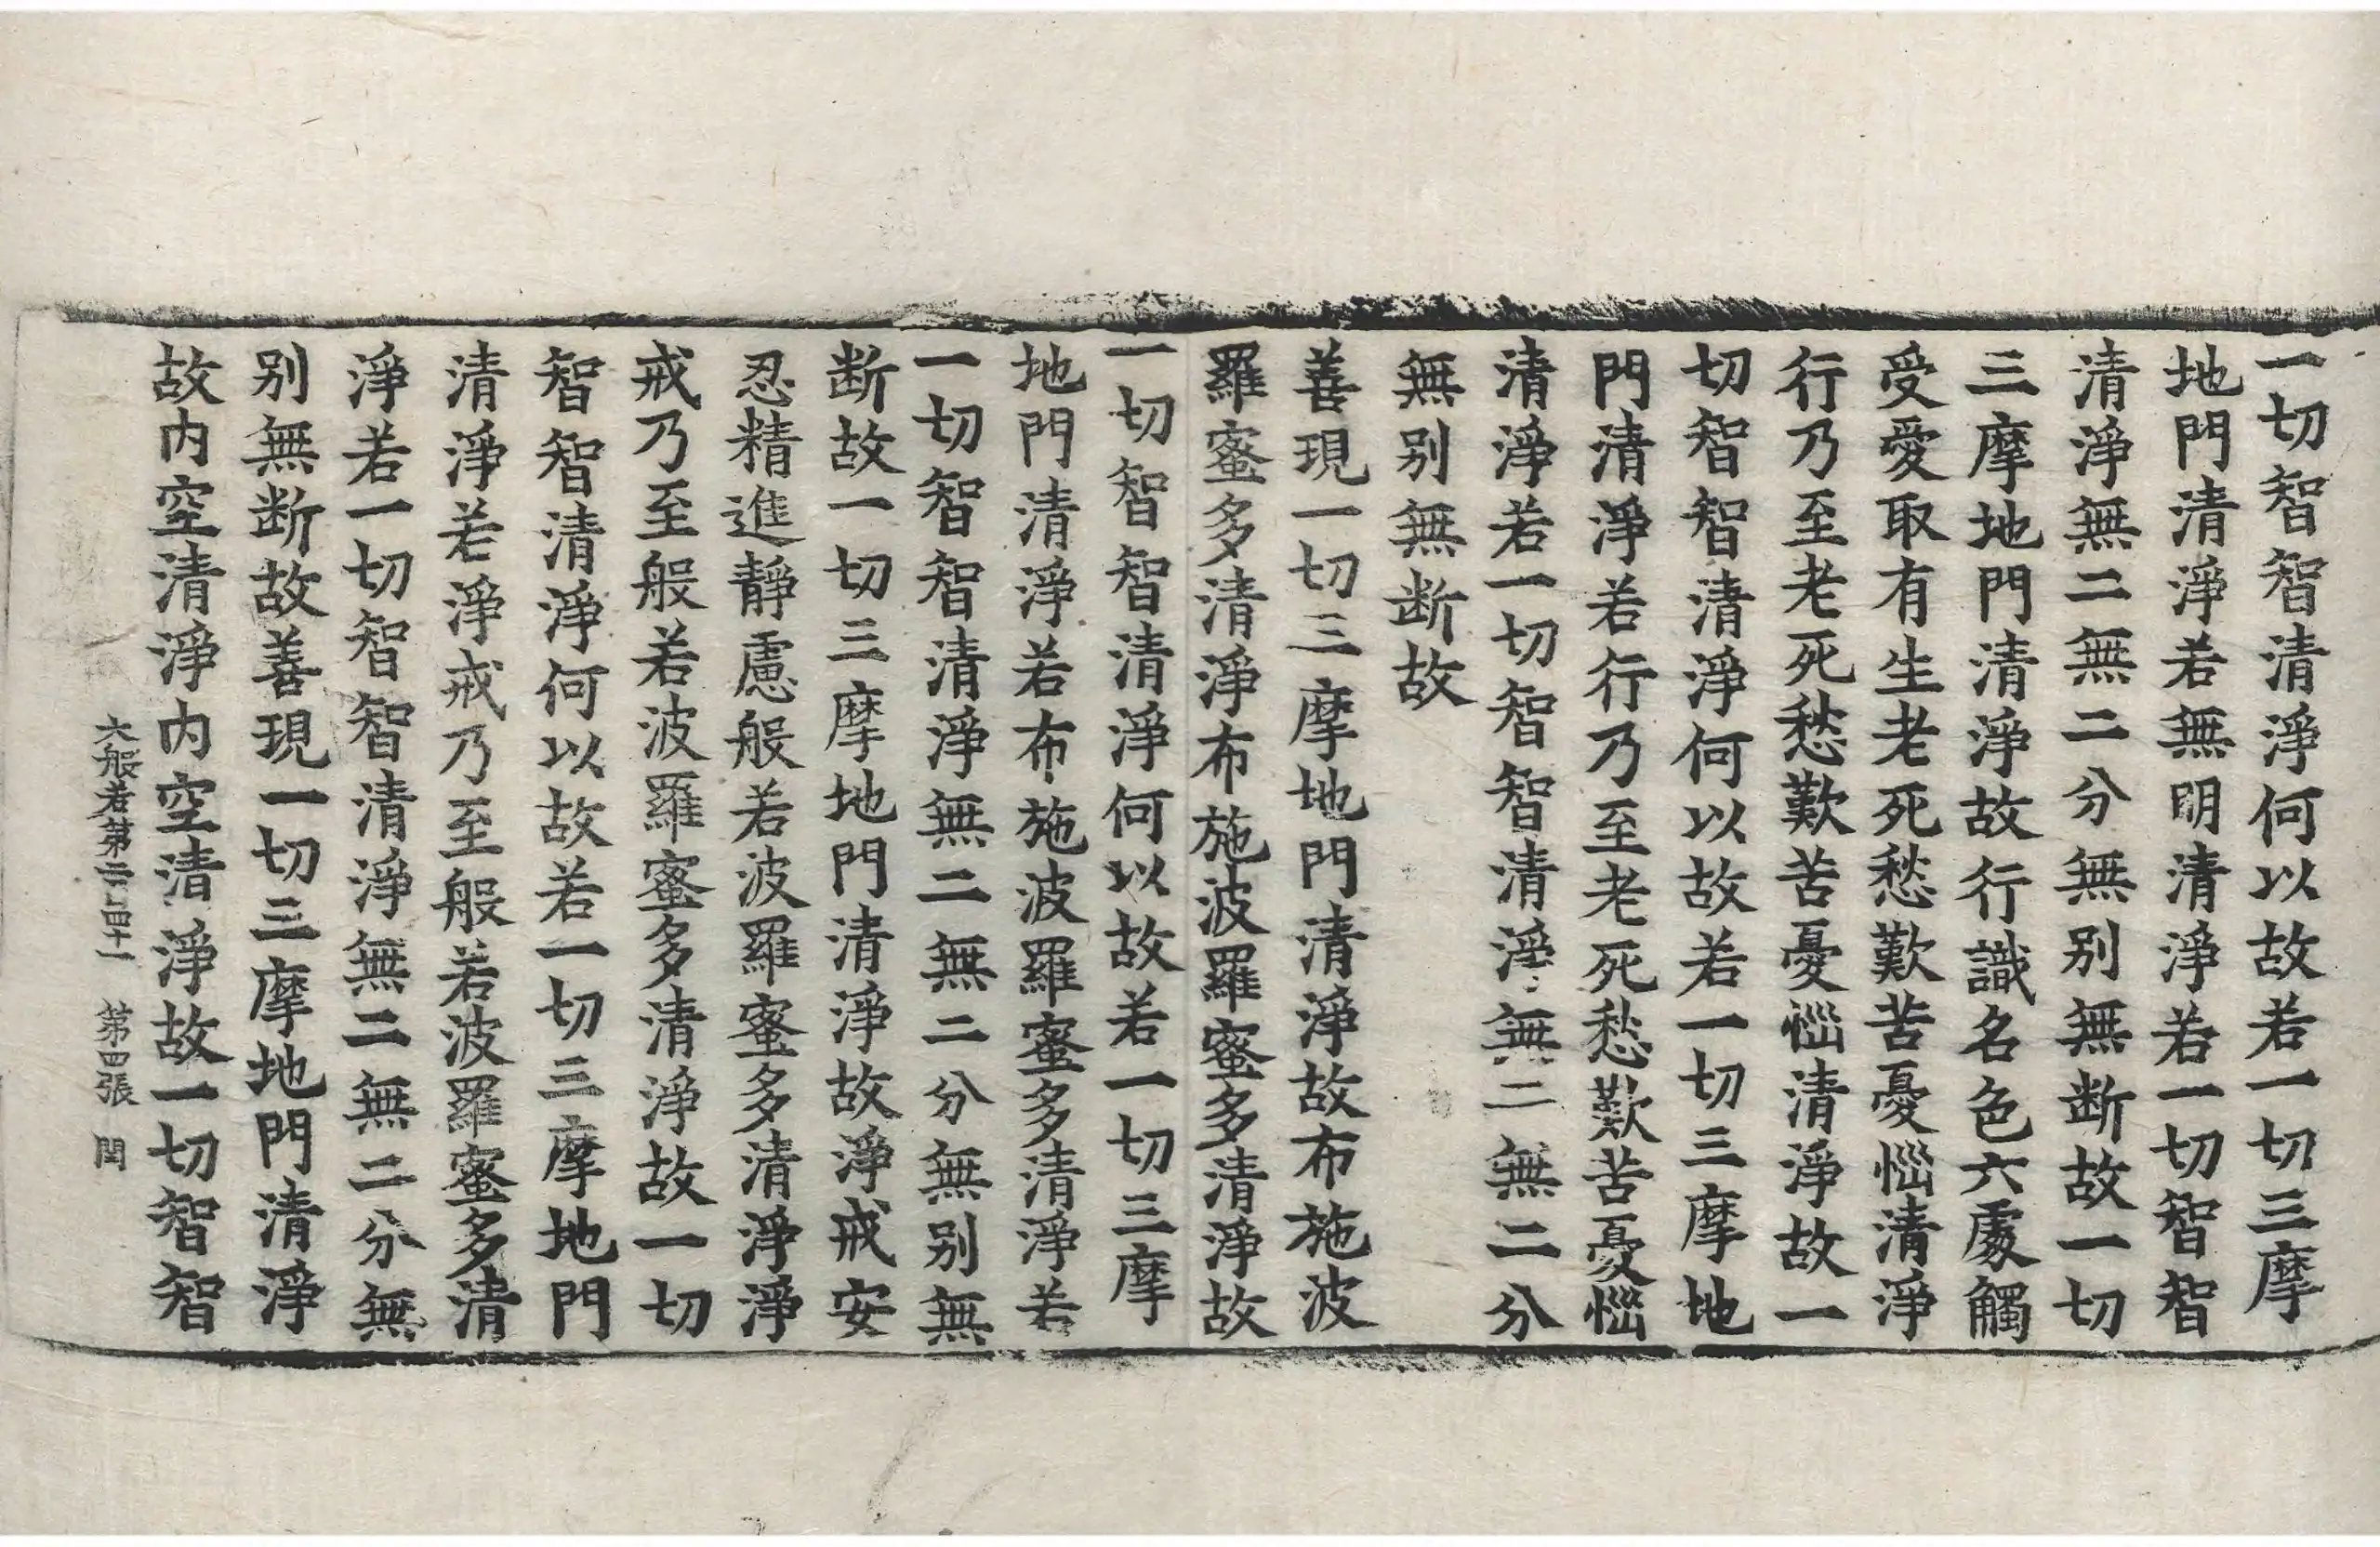 一切智智清淨何以故若一切三摩
地門清淨若無明清淨若一切智智
清淨無二無二分無別無断故一切
三摩地門清淨故行識名色六處觸
受愛取有生老死愁歎苦憂惱清淨
行乃至老死愁歎苦憂惱清淨故一
切智智清淨何以故若一切三摩地
門清淨若行乃至老死愁歎苦憂惱
清淨若一切智智清淨無二無二分
無別無断故
善現一切三摩地門清淨故布施波
羅蜜多清淨布施波羅蜜多清淨故
一切智智清淨何以故若一切三摩
地門清淨若布施波羅蜜多清淨若
一切智智清淨無二無二分無別無
断故一切三摩地門清淨故淨戒安
忍精進靜慮般若波羅蜜多清淨淨
戒乃至般若波羅蜜多清淨故一切
智智清淨何以故若一切三摩地門
清淨若淨戒乃至般若波羅蜜多清
淨若一切智智清淨無二無二分無
別無断故善現一切三摩地門清淨
故內空清淨內空清淨故一切智智
大般若第二百四十一 第四張 閏